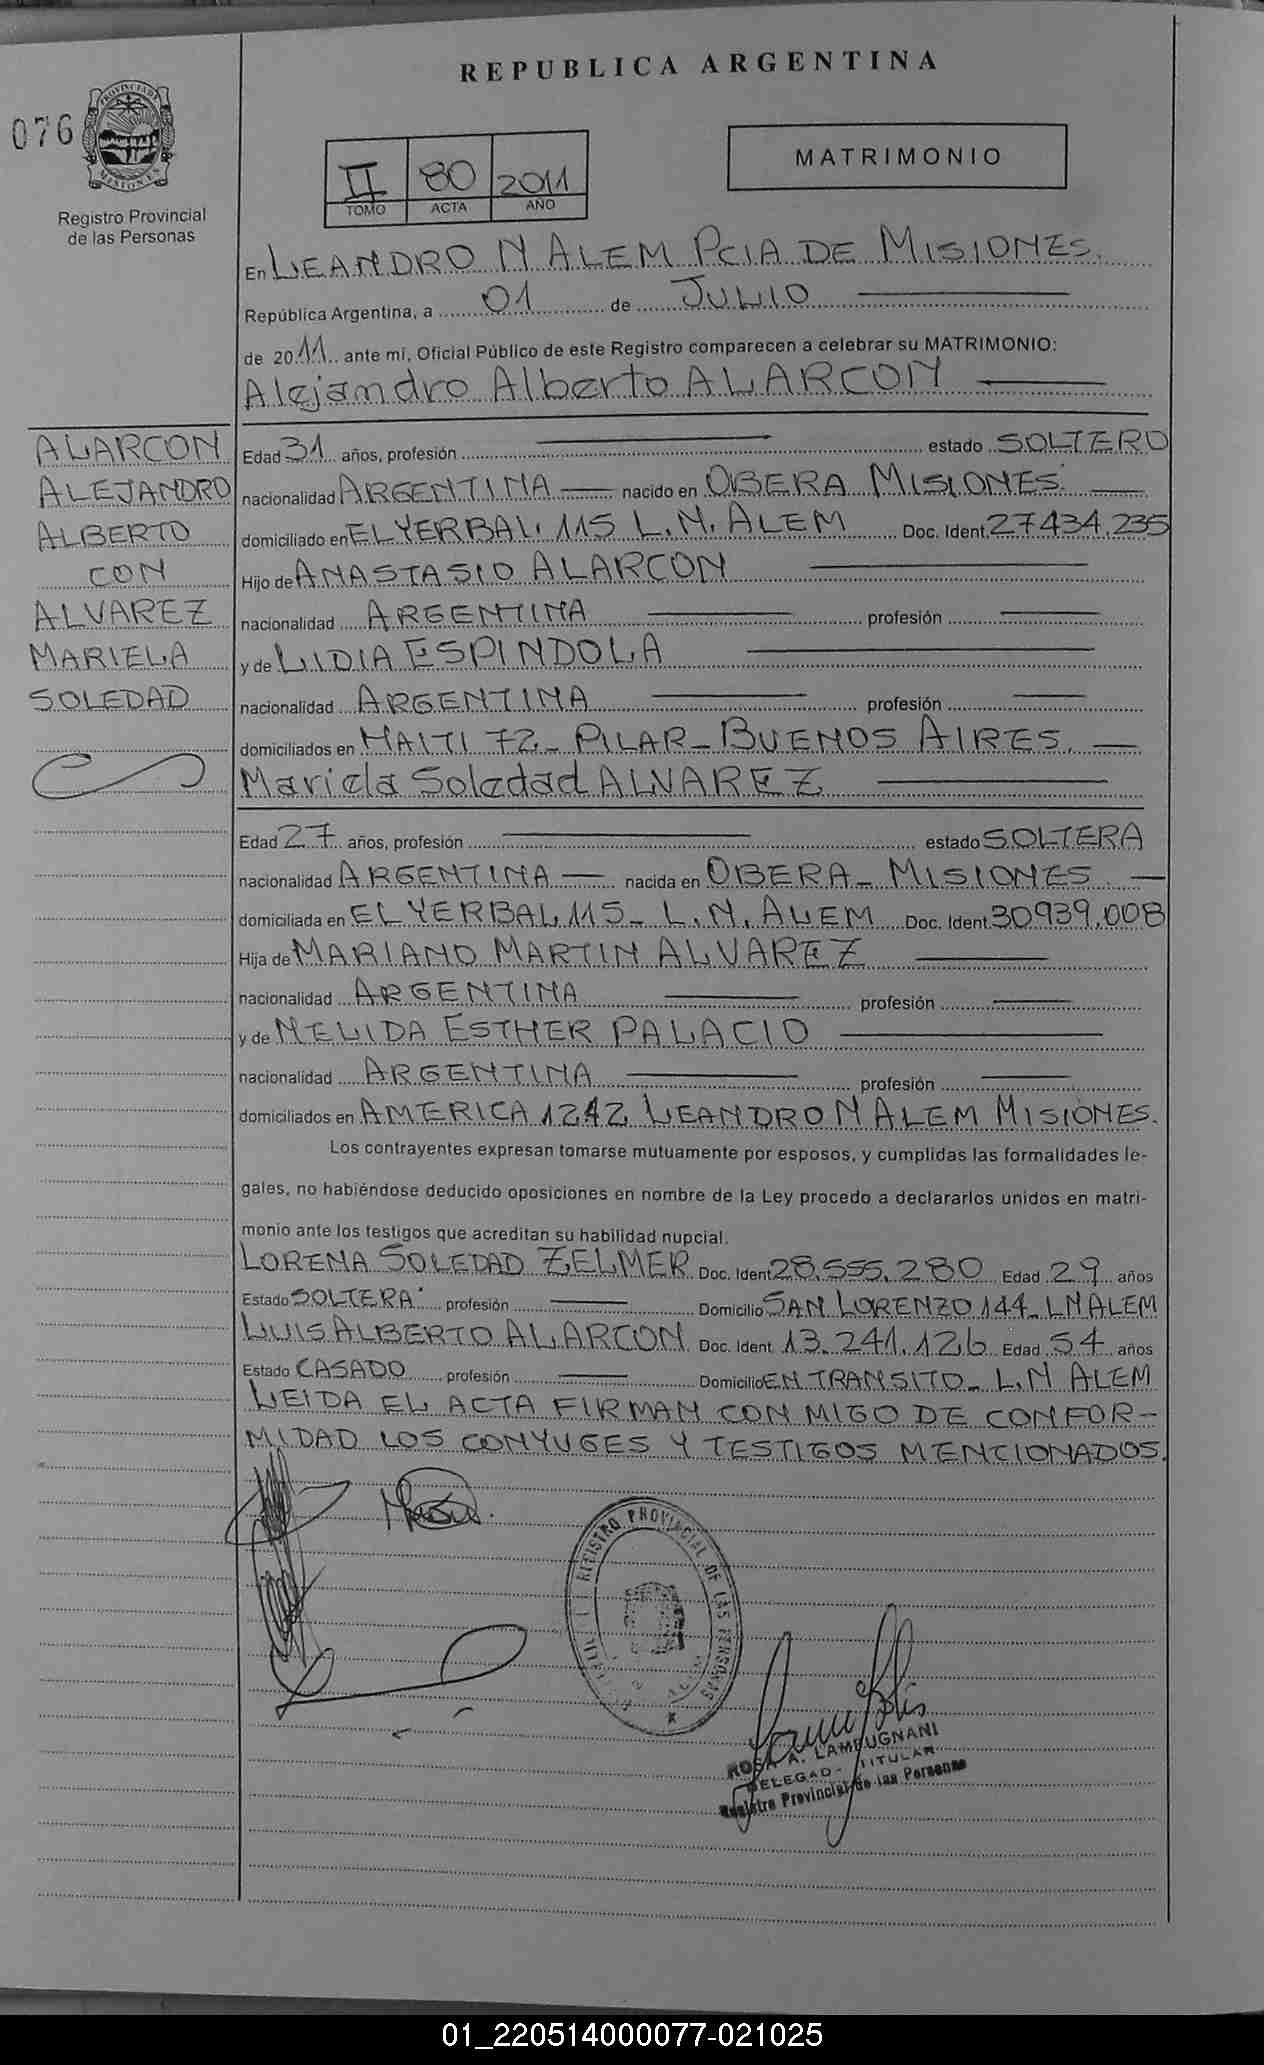 REPUBLICA ARGENTINA
076
PROVINCIA DE MISIONES
Registro Provincial
de las Personas
II 80 2011
TOMO ACTA AÑO
MATRIMONIO
En LEANDRO N ALEM PCIA DE MISIONES.
República Argentina, a 01 de JULIO
de 2011 ante mí, Oficial Público de este Registro comparecen a celebrar su MATRIMONIO:
Alejandro Alberto ALARCON
ALARCON
ALEJANDRO
ALBERTO
CON
ALVAREZ
MARIELA
SOLEDAD
Edad 31 años, profesión estado SOLTERO
nacionalidad ARGENTINA nacido en OBERA MISIONES.
domiciliado en EL YERBAL 115 L.N. ALEM Doc. Ident. 27434.235
Hijo de ANASTASIO ALARCON
nacionalidad ARGENTINA profesión
y de LIDIA ESPINDOLA
nacionalidad ARGENTINA profesión
domiciliados en HAITI 72 - PILAR - BUENOS AIRES.
Mariela Soledad ALVAREZ
Edad 27 años, profesión estado SOLTERA
nacionalidad ARGENTINA nacida en OBERA - MISIONES
domiciliada en EL YERBAL 115 - L.N. ALEM Doc. Ident. 30939.008
Hija de MARIANO MARTIN ALVAREZ
nacionalidad ARGENTINA profesión
y de NELIDA ESTHER PALACIO
nacionalidad ARGENTINA profesión
domiciliados en AMERICA 1242 LEANDRO N ALEM MISIONES.
Los contrayentes expresan tomarse mutuamente por esposos, y cumplidas las formalidades le-
gales, no habiéndose deducido oposiciones en nombre de la Ley procedo a declararlos unidos en matri-
monio ante los testigos que acreditan su habilidad nupcial.
LORENA SOLEDAD ZELMER Doc. Ident 28.555.280 Edad 29 años
Estado SOLTERA profesión Domicilio SAN LORENZO 144 - L N ALEM
LUIS ALBERTO ALARCON Doc. Ident. 13.241.126 Edad 54 años
Estado CASADO profesión Domicilio EN TRANSITO - L.N ALEM
LEIDA EL ACTA FIRMAN CON MIGO DE CONFOR-
MIDAD LOS CONYUGES Y TESTIGOS MENCIONADOS.
REGISTRO PROVINCIAL DE LAS PERSONAS
ROSA A. LAMBUGNANI
DELEGAD- TITULAR
Registro Provincial de las Personas
01_220514000077-021025